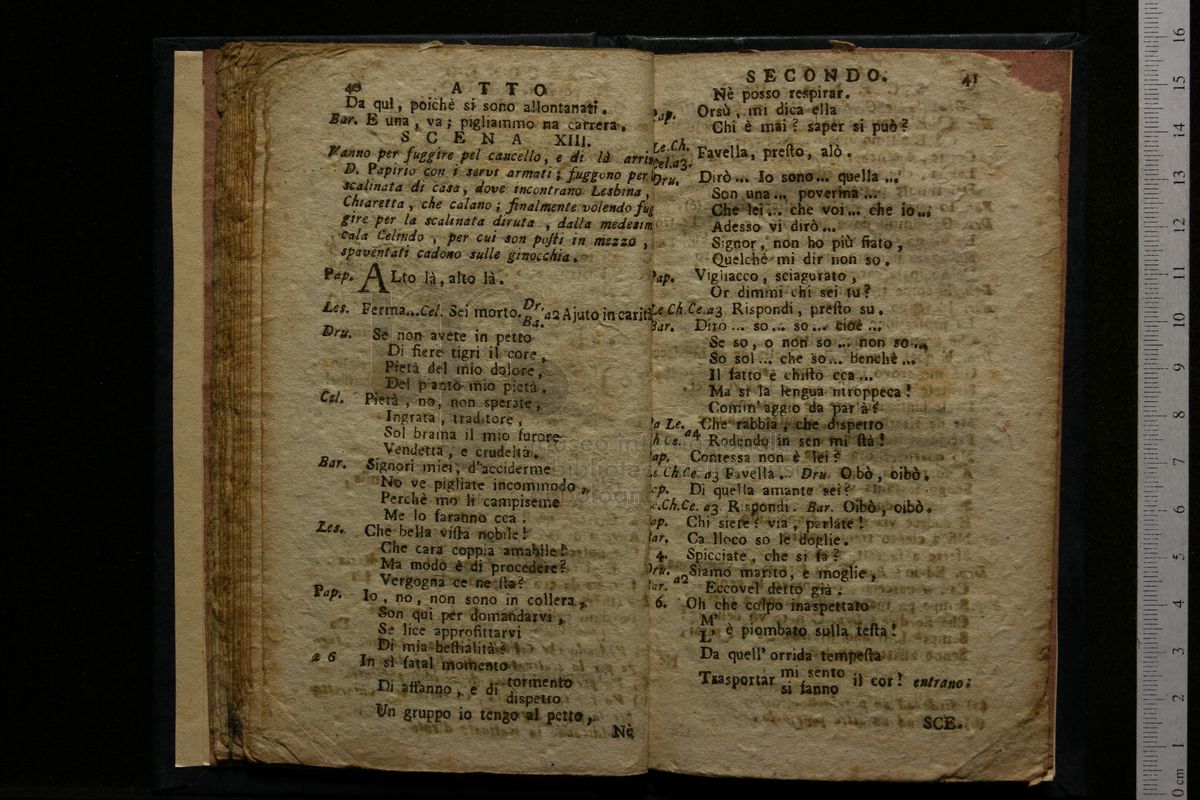 40 ATTO
Da quì, poichè si sono allontanati.
Bar. E una, va; pigliammo na carrera.
SCENA XIII.
Vanno per fuggire pel cancello, e di là arri
D. Papirio con i servi armati; fuggono per
scalinata di casa, dove incontrano Lesbina,
Chiaretta, che calano; finalmente volendo fug
gire per la scalinata diruta, dalla medesim
cala Celindo, per cui son posti in mezzo,
spaventati cadono sulle ginocchia.
Pap. ALto là, alto là.
Les. Ferma...Cel. Sei morto. Dr. Ba. a2 Ajuto in carità
Dru. Se non avete in petto
Di fiere tigri il core,
Pietà del mio dolore,
Del pianto mio pietà.
Cel. Pietà, no, non sperate,
Ingrata, traditore,
Sol brama il mio furore
Vendetta, e crudeltà.
Bar. Signori miei, d'acciderme
No ve pigliate incommodo,
Perchè mo li campiseme
Me lo faranno cca.
Les. Che bella vista nobile!
Che cara coppia amabile!
Ma modo è di procedere?
Vergogna ce ne sta?
Pap. Io, no, non sono in collera,
Son qui per domandarvi,
Se lice approfittarvi
Di mia bestialità?
a 6 In sì fatal momento
Di affanno, e di tormento
dispetto
Un gruppo io tengo al petto,
Nè
SECONDO. 41
Nè posso respirar.
Pap. Orsù, mi dica ella
Chi è mai? saper si può?
Le.Ch.
Cel.a3. Favella, presto, alò.
Dru. Dirò... Io sono... quella...
Son una... poverina...
Che lei... che voi... che io...
Adesso vi dirò...
Signor, non ho più fiato,
Quelchè mi dir non so.
Pap. Vigliacco, sciagurato,
Or dimmi chi sei tu?
Le Ch.Ce.a3 Rispondi, presto su.
Bar. Diro... so... so... cioè...
Se so, o non so... non so...
So sol... che so... benchè...
Il fatto è chisto cca...
Ma si la lengua ntroppeca!
Comm' aggio da par'à?
a Le. Che rabbia, che dispetto
h Ce. a4 Rodendo in sen mi stà!
ap. Contessa non è lei?
Le Ch.Ce. a3 Favella. Dru. Oibò, oibò.
ap. Di quella amante sei?
e.Ch.Ce. a3 Rispondi. Bar. Oibò, oibò.
ap. Chi siete? via, parlate!
Bar. Ca lloco so le doglie.
4. Spicciate, che si fa?
Dru. Siamo marito, e moglie,
Bar. a2 Eccovel detto già.
6. Oh che colpo inaspettato
M'
L' è piombato sulla testa!
Da quell' orrida tempesta
Trasportar mi sento il cor! entrano:
si fanno
SCE.